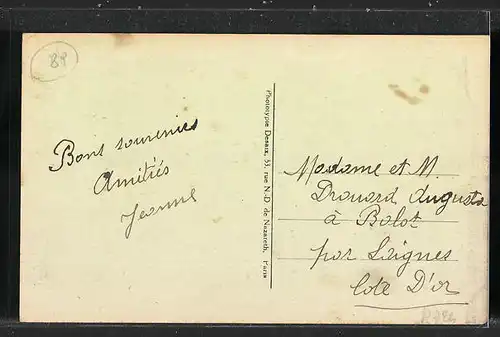 BP
Bons souvenirs
Amitiés
Jeanne
Phototypie Desaix, 53, rue N.-D. de Nazareth, Paris
Madame et M.
Drouard Auguste
à Balot
par Laignes
Cote D'or